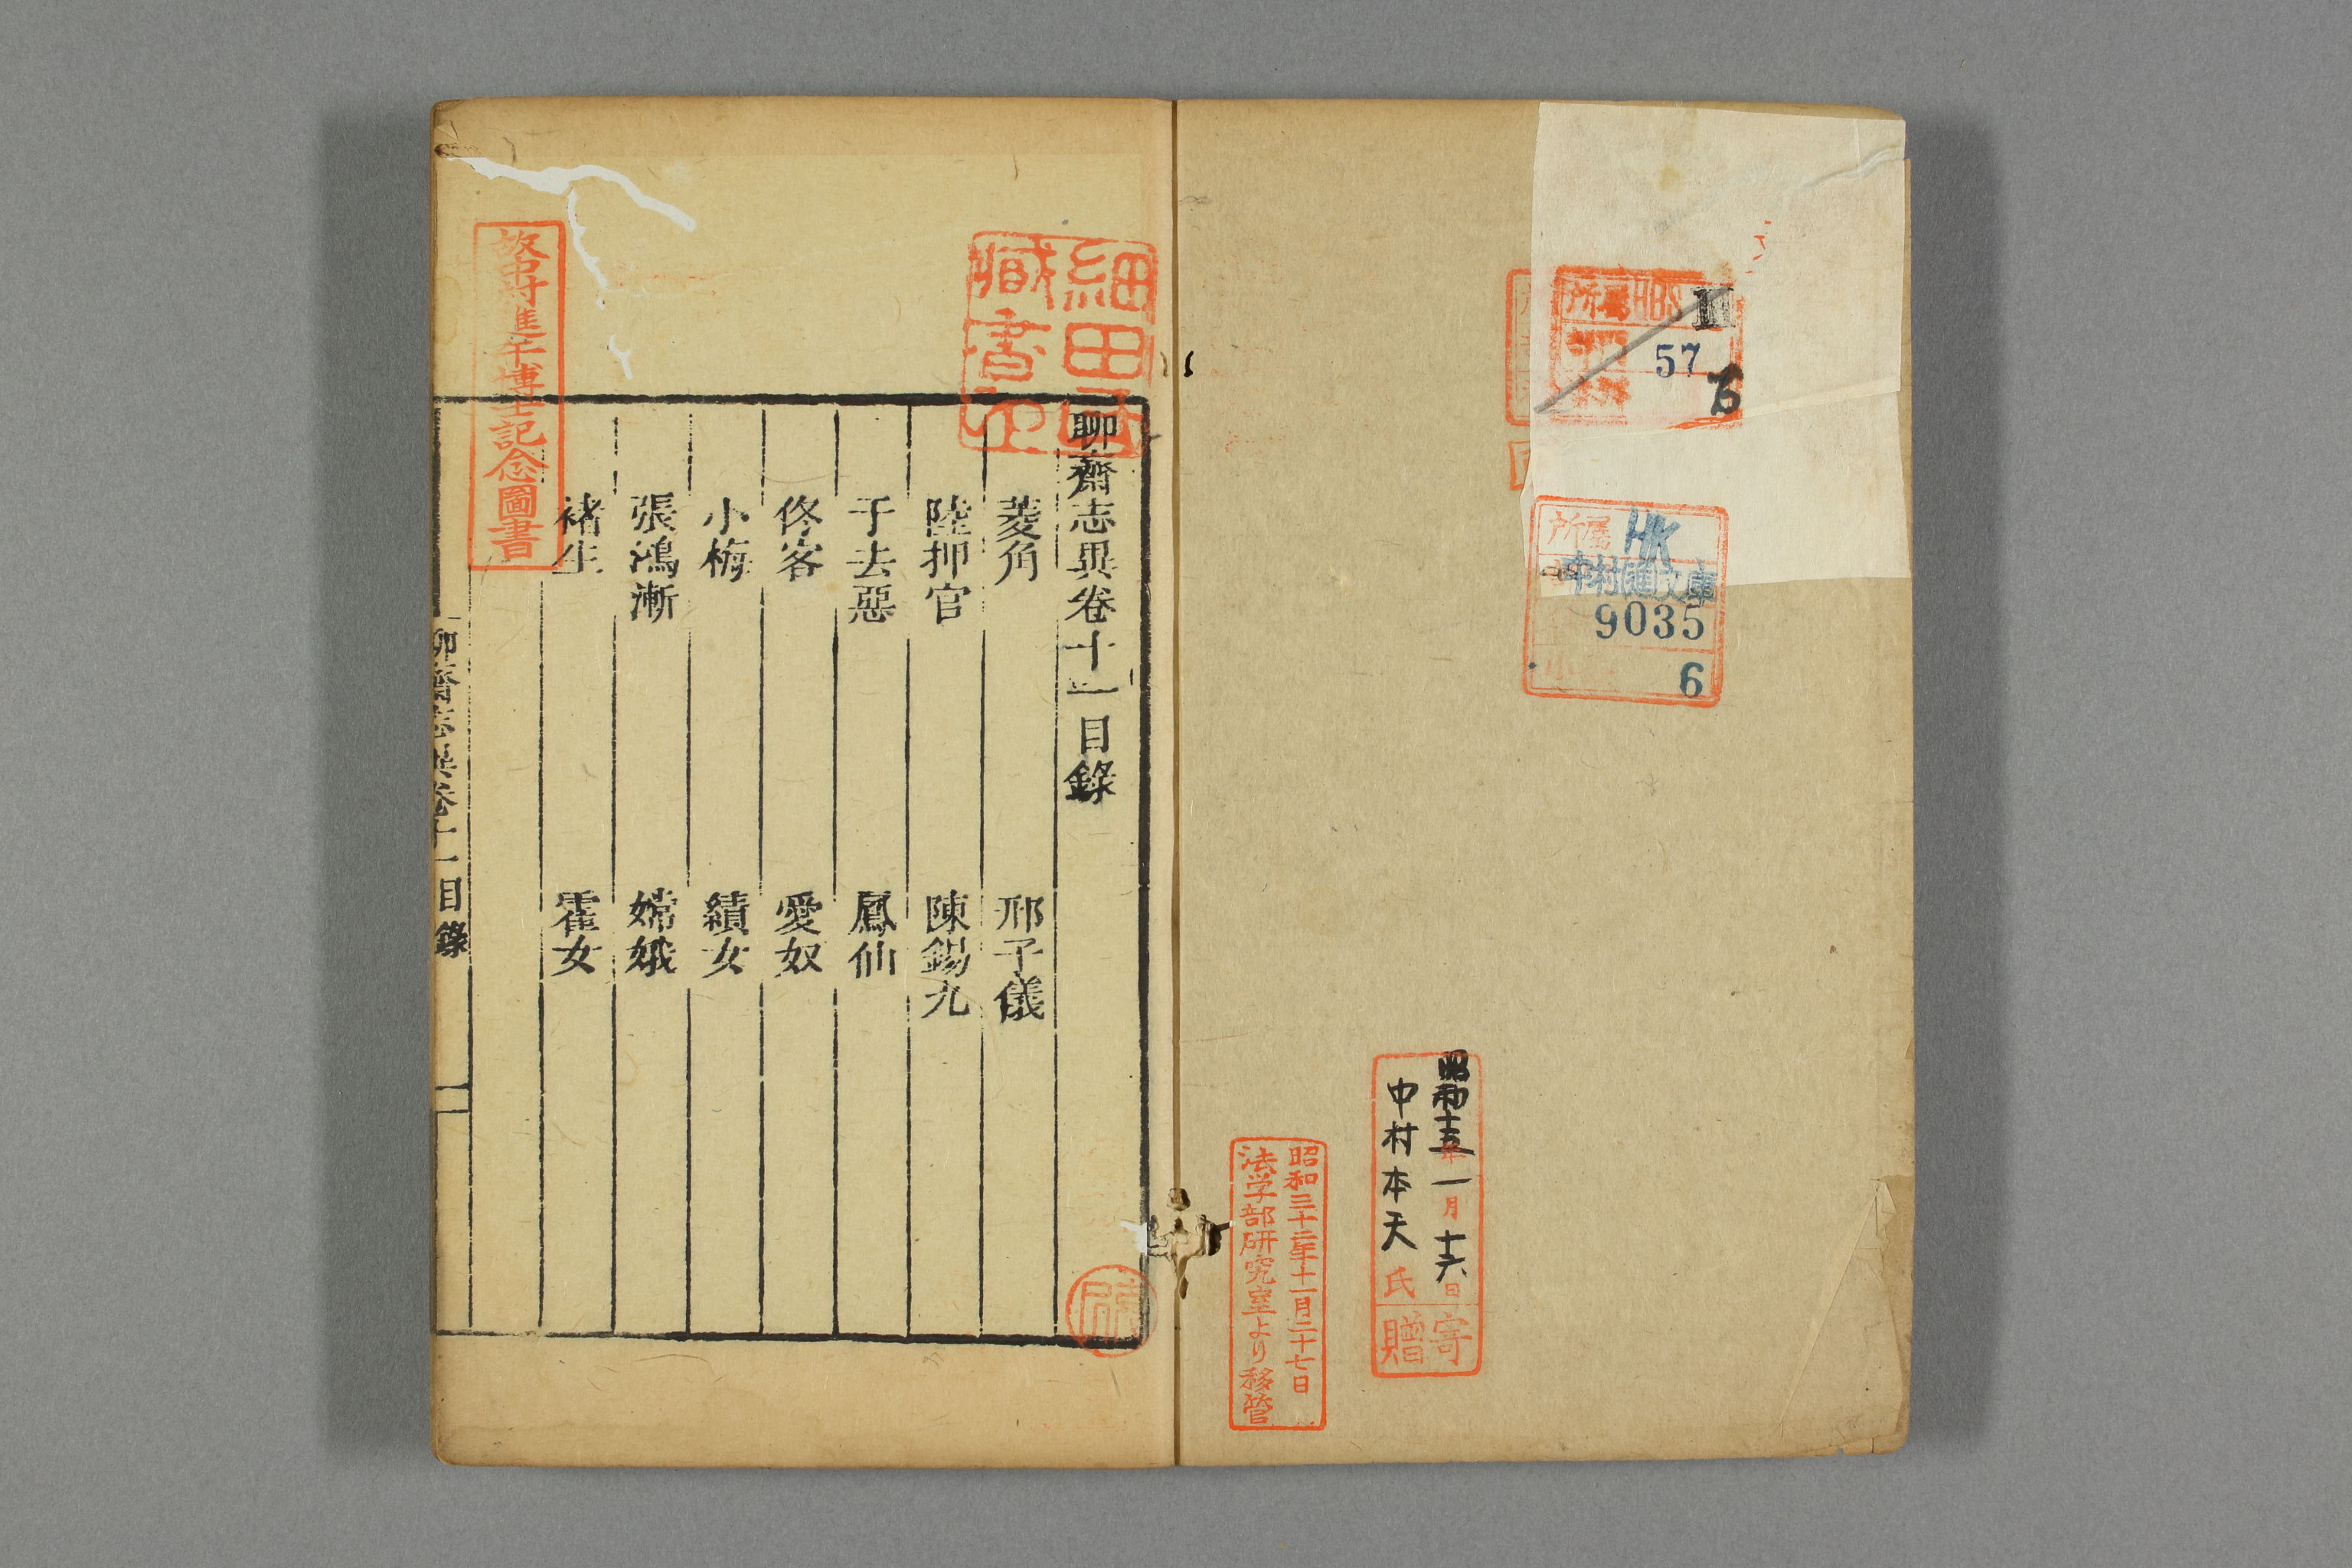 所属
57
所属 HK
中村進文庫
9035
6
昭和十五年一月十六日
中村本天氏
寄贈
昭和三十二年十一月二十七日
法学部研究室より移管
細田
藏書
聊齋志異卷十一目錄
菱角 邢子儀
陸押官 陳錫九
于去惡 鳳仙
佟客 愛奴
小梅 績女
張鴻漸 嫦娥
褚生 霍女
故中村進午博士記念圖書
聊齋志異卷十一目錄 一